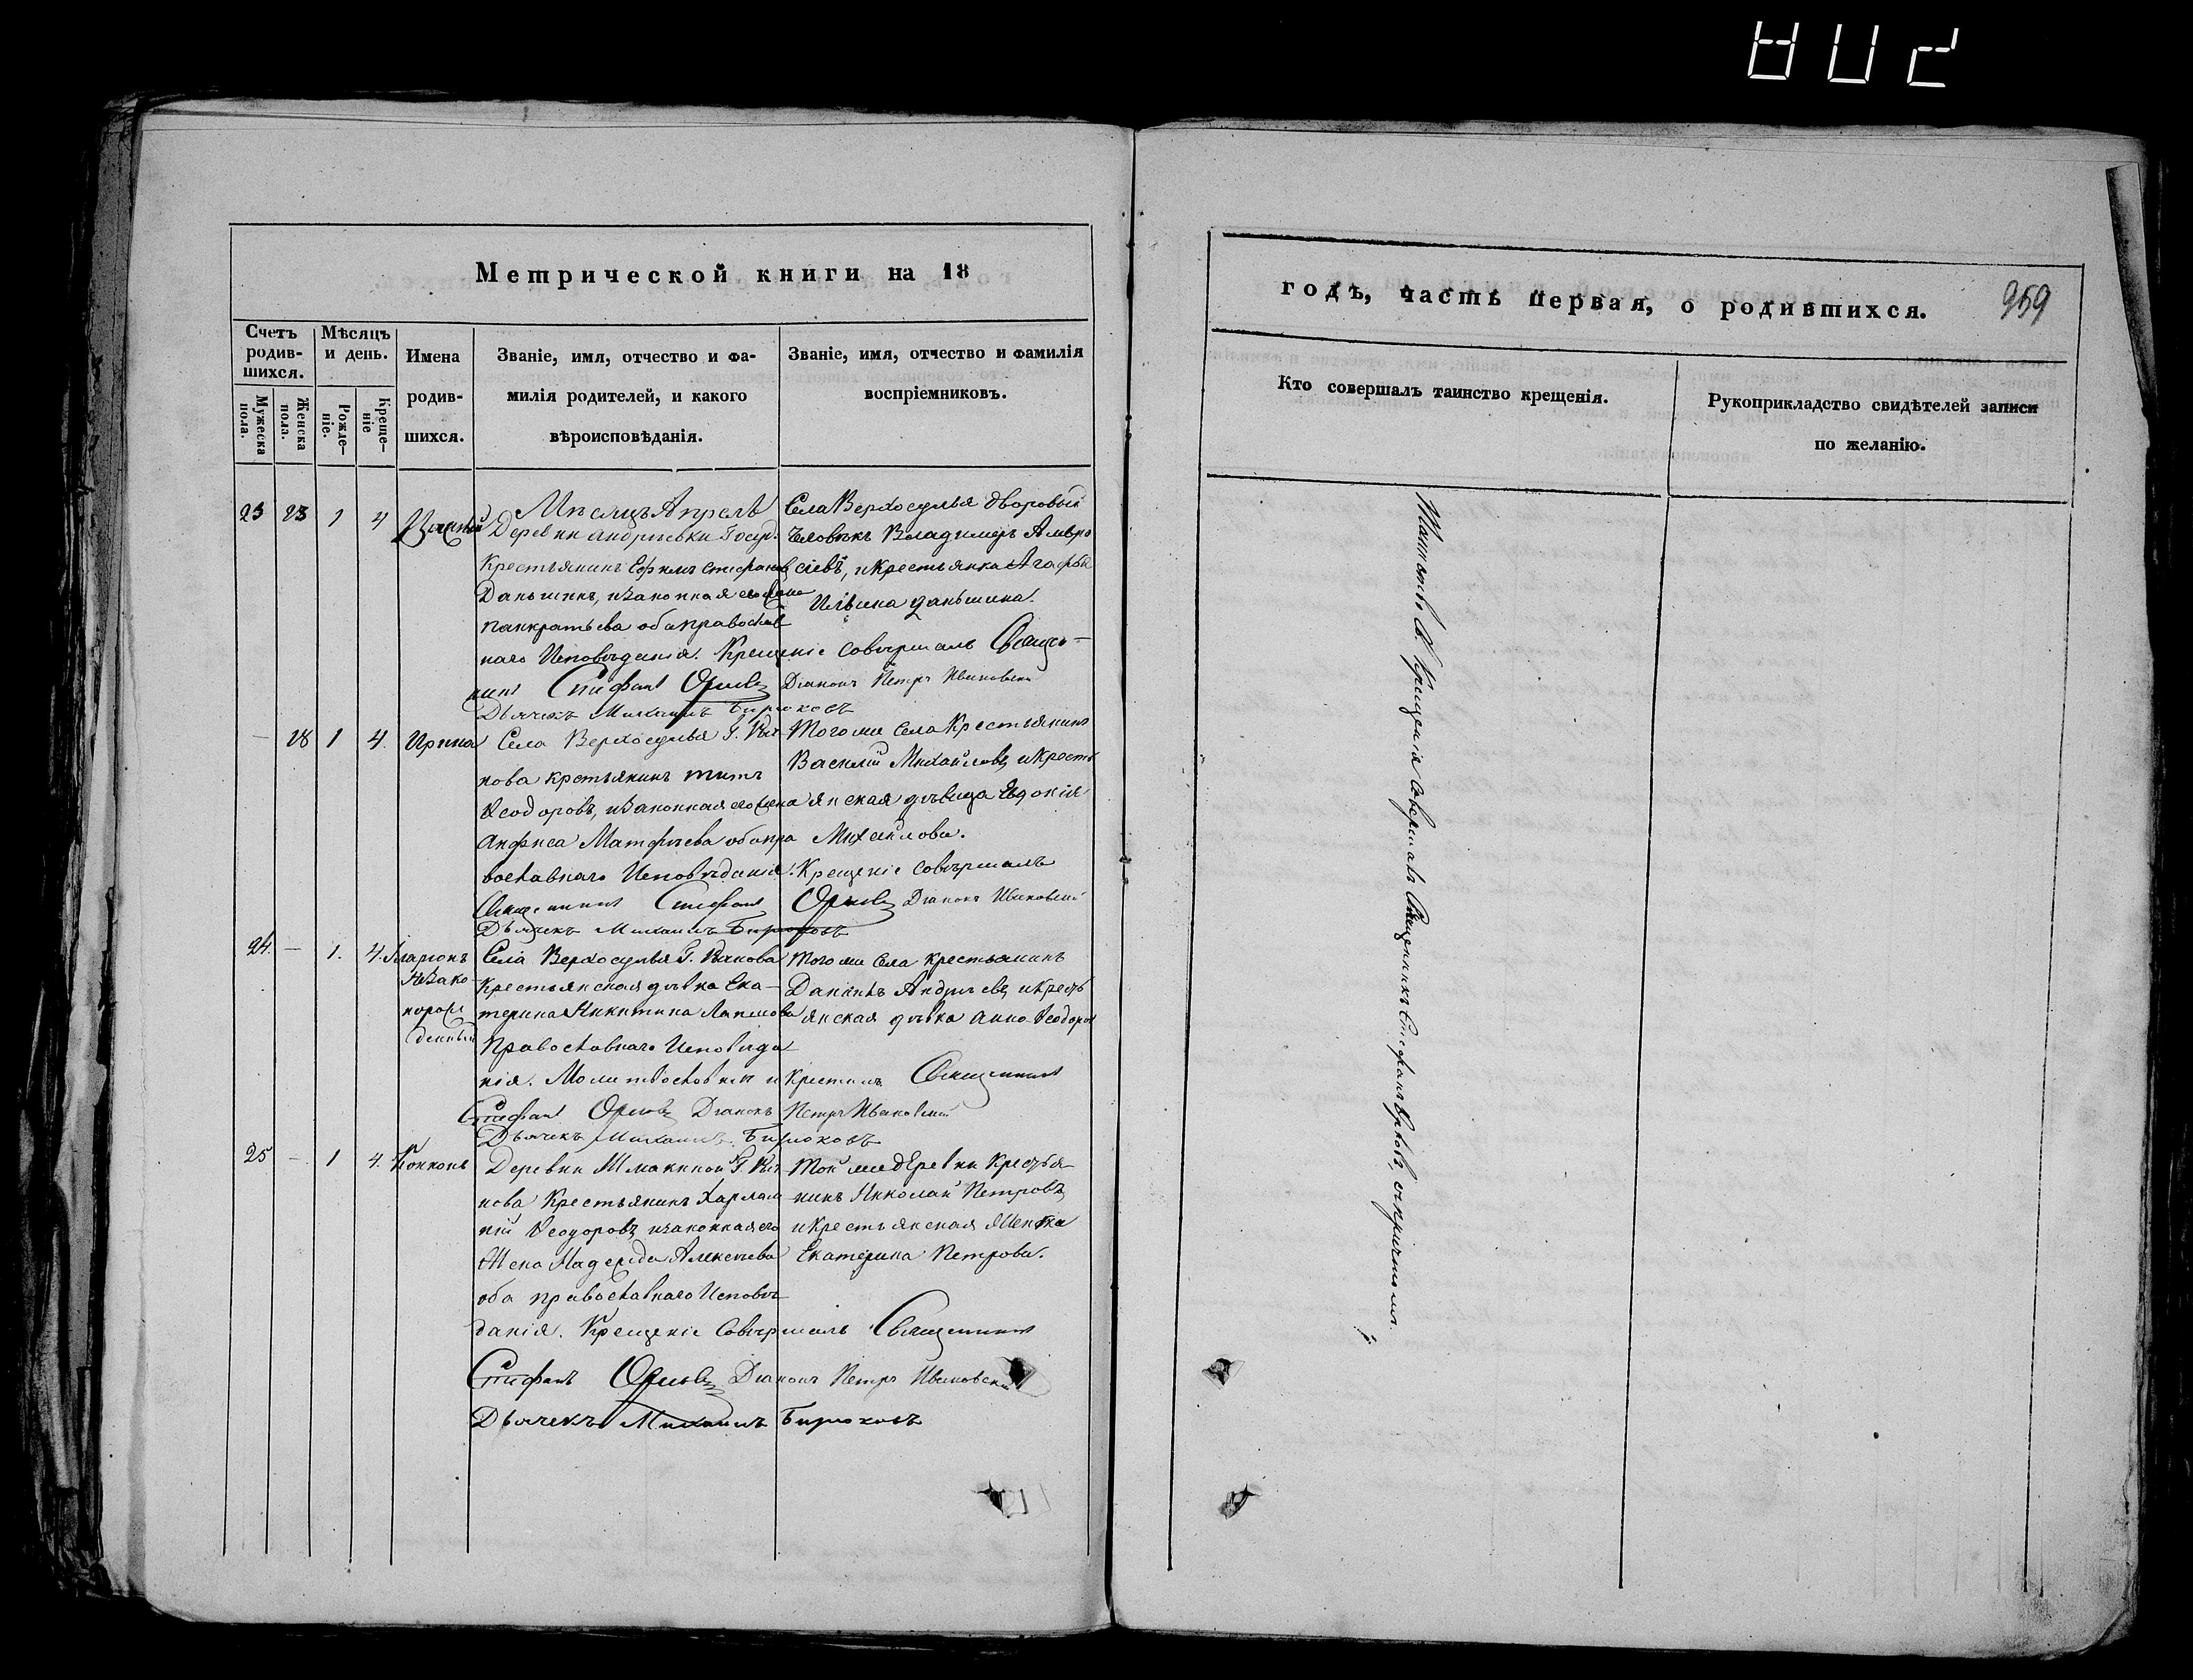 Метрической книги на 18
годъ, часть первая, о родившихся. 959
Счетъ родив-шихся.
Мужеска пола.
Женска пола.
Мѣсяцъ и день.
Рожде-ніе.
Креще-ніе
Имена
родив-
шихся.
Званіе, имя, отчество и фа-
милія родителей, и какого
вѣроисповѣданія.
Званіе, имя, отчество и фамилія
воспріемниковъ.
Кто совершалъ таинство крещенія.
Рукоприкладство свидѣтелей записи
по желанію.
Мѣсяцъ Апрель
23 1 4
Деревни Андреевки Госуд.
Крестьянинъ Ефимъ Стефановъ
Даньшинъ, и законная его жена
Панкратьева оба православ
наго Исповѣданія. Крещеніе совершалъ Священ-
никъ Стефанъ Орловъ Діаконъ Петръ Ивановскій
Дьячекъ Михаилъ Бирюковъ
Села Верхосулья дворовый
человѣкъ Владимеръ Амвро
сіевъ, и крестьянка Агафья
Ильина Даньшина.
— 28 1 4. Ирина
Села Верхосулья Г.
нова крестьянинъ Титъ
Ѳеодоровъ, и законная его жена
Анфиса Матфѣева оба пра
вославнаго Исповѣданія. Крещеніе совершалъ
Священникъ Стефанъ Орловъ Діаконъ Ивановскій
Дьячекъ Михаилъ Бирюковъ
Того же села Крестьянинъ
Василій Михайловъ, и кресть
янская дѣвица Евдокія
Михайлова.
24. — 1. 4. Иларіонъ
незако
норож
денный
Села Верхосулья Г.
Крестьянская дѣвка Ека-
терина Никитина
Православнаго Исповѣда
нія. Молитвословилъ и крестилъ Священникъ
Стефанъ Орловъ Діаконъ Петръ Ивановскій
Дьячекъ Михаилъ Бирюковъ
Того же села крестьянинъ
Андреевъ, и кресть
янская дѣвка Анна Ѳеодоров
25 — 1 4. Конконъ
Деревни Шмакиной Г.
нова Крестьянинъ Харлам
пій Ѳеодоровъ и законная его
жена Надежда Алексѣева
оба православнаго Исповѣ
данія. Крещеніе совершалъ Священникъ
Стефанъ Орловъ Діаконъ Петръ Ивановскій
Дьячекъ Михаилъ Бирюковъ
Той же деревни Крестья
нинъ Николай Петровъ,
и крестьянская женка
Екатерина Петрова.
Таинство Св. Крещенія совершалъ Священникъ Стефанъ Орловъ, съ причтомъ.